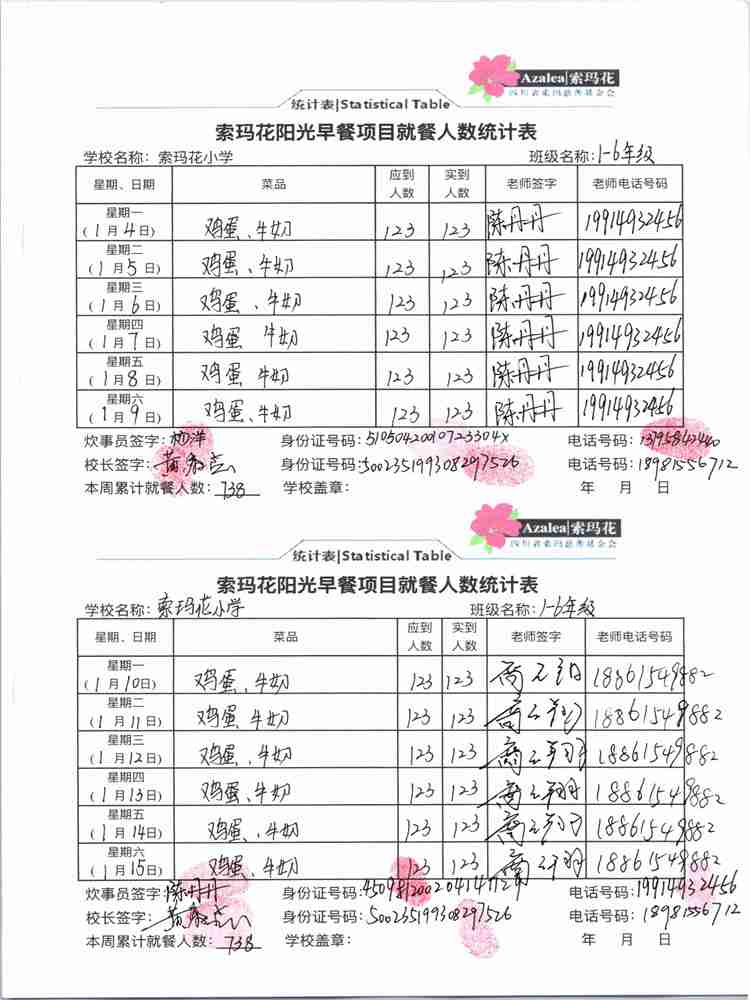 Azalea|索玛花
四川省索玛慈善基金会
统计表|Statistical Table
索玛花阳光早餐项目就餐人数统计表
学校名称：索玛花小学 班级名称：1-6年级
星期、日期 菜品 应到人数 实到人数 老师签字 老师电话号码
星期一
（1月4日） 鸡蛋、牛奶 123 123 陈丹丹 19914932456
星期二
（1月5日） 鸡蛋、牛奶 123 123 陈丹丹 19914932456
星期三
（1月6日） 鸡蛋、牛奶 123 123 陈丹丹 19914932456
星期四
（1月7日） 鸡蛋 牛奶 123 123 陈丹丹 19914932456
星期五
（1月8日） 鸡蛋 牛奶 123 123 陈丹丹 19914932456
星期六
（1月9日） 鸡蛋、牛奶 123 123 陈丹丹 19914932456
炊事员签字：杨洋 身份证号码：51050420010723304X 电话号码：13795842440
校长签字： 身份证号码：500235199308297526 电话号码：18981556712
本周累计就餐人数：738 学校盖章： 年 月 日
Azalea|索玛花
四川省索玛慈善基金会
统计表|Statistical Table
索玛花阳光早餐项目就餐人数统计表
学校名称：索玛花小学 班级名称：1-6年级
星期、日期 菜品 应到人数 实到人数 老师签字 老师电话号码
星期一
（1月10日） 鸡蛋、牛奶 123 123 18861549882
星期二
（1月11日） 鸡蛋、牛奶 123 123 18861549882
星期三
（1月12日） 鸡蛋、牛奶 123 123 18861549882
星期四
（1月13日） 鸡蛋、牛奶 123 123 18861549882
星期五
（1月14日） 鸡蛋、牛奶 123 123 18861549882
星期六
（1月15日） 鸡蛋、牛奶 123 123 18861549882
炊事员签字：陈丹丹 身份证号码： 电话号码：19914932456
校长签字： 身份证号码：500235199308297526 电话号码：18981556712
本周累计就餐人数：738 学校盖章： 年 月 日